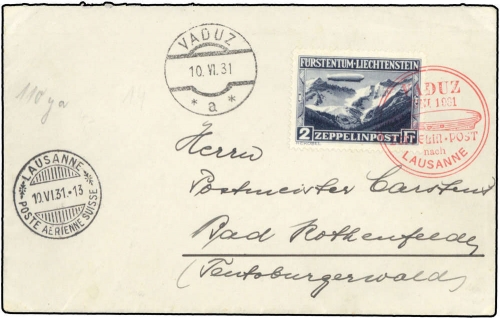 VADUZ
10. VI. 31
* a *
FÜRSTENTUM·LIECHTENSTEIN
2 ZEPPELINPOST Fr
VADUZ
1931
POST
nach
LAUSANNE
110 ya
LAUSANNE
10.VI.31.-13
POSTE AÉRIENNE SUISSE
Herrn
Postmeister Carstens
Bad Rothenfelde
(Teutoburgerwald)